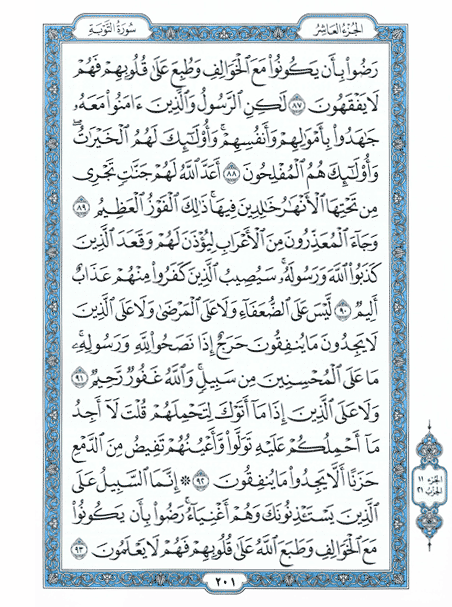 سُورَةُ التَّوْبَةِ
الجُزءُ العَاشِرُ
رَضُوا۟ بِأَن يَكُونُوا۟ مَعَ ٱلْخَوَالِفِ وَطُبِعَ عَلَىٰ قُلُوبِهِمْ فَهُمْ
لَا يَفْقَهُونَ ٨٧ لَـٰكِنِ ٱلرَّسُولُ وَٱلَّذِينَ ءَامَنُوا۟ مَعَهُۥ
جَـٰهَدُوا۟ بِأَمْوَٰلِهِمْ وَأَنفُسِهِمْ ۚ وَأُو۟لَـٰٓئِكَ لَهُمُ ٱلْخَيْرَٰتُ ۖ
وَأُو۟لَـٰٓئِكَ هُمُ ٱلْمُفْلِحُونَ ٨٨ أَعَدَّ ٱللَّهُ لَهُمْ جَنَّـٰتٍ تَجْرِى
مِن تَحْتِهَا ٱلْأَنْهَـٰرُ خَـٰلِدِينَ فِيهَا ۚ ذَٰلِكَ ٱلْفَوْزُ ٱلْعَظِيمُ ٨٩
وَجَآءَ ٱلْمُعَذِّرُونَ مِنَ ٱلْأَعْرَابِ لِيُؤْذَنَ لَهُمْ وَقَعَدَ ٱلَّذِينَ
كَذَبُوا۟ ٱللَّهَ وَرَسُولَهُۥ ۚ سَيُصِيبُ ٱلَّذِينَ كَفَرُوا۟ مِنْهُمْ عَذَابٌ
أَلِيمٌ ٩٠ لَّيْسَ عَلَى ٱلضُّعَفَآءِ وَلَا عَلَى ٱلْمَرْضَىٰ وَلَا عَلَى ٱلَّذِينَ
لَا يَجِدُونَ مَا يُنفِقُونَ حَرَجٌ إِذَا نَصَحُوا۟ لِلَّهِ وَرَسُولِهِۦ ۚ
مَا عَلَى ٱلْمُحْسِنِينَ مِن سَبِيلٍ ۚ وَٱللَّهُ غَفُورٌ رَّحِيمٌ ٩١
وَلَا عَلَى ٱلَّذِينَ إِذَا مَآ أَتَوْكَ لِتَحْمِلَهُمْ قُلْتَ لَآ أَجِدُ
مَآ أَحْمِلُكُمْ عَلَيْهِ تَوَلَّوا۟ وَّأَعْيُنُهُمْ تَفِيضُ مِنَ ٱلدَّمْعِ
حَزَنًا أَلَّا يَجِدُوا۟ مَا يُنفِقُونَ ٩٢ ۞ إِنَّمَا ٱلسَّبِيلُ عَلَى
ٱلَّذِينَ يَسْتَـْٔذِنُونَكَ وَهُمْ أَغْنِيَآءُ ۚ رَضُوا۟ بِأَن يَكُونُوا۟
مَعَ ٱلْخَوَالِفِ وَطَبَعَ ٱللَّهُ عَلَىٰ قُلُوبِهِمْ فَهُمْ لَا يَعْلَمُونَ ٩٣
الجزء ١١
الحزب ٢١
٢٠١